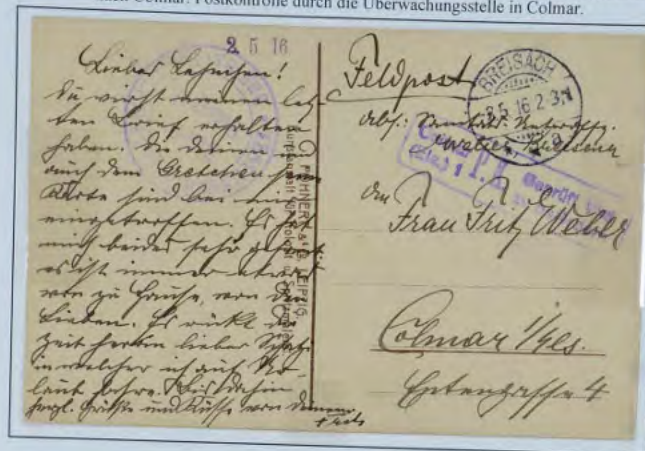 nach Colmar. Postkontrolle durch die Überwachungsstelle in Colmar.
2 5 16
Liebes
Du wirst meinen letz-
ten Brief erhalten
haben. Die deinen
auch dem Gretchen
Karte sind bei mir
eingetroffen. Es hat
mich beides sehr gefreut
es ist immer etwas
von zu Hause, von den
Lieben. Es rückt die
Zeit heran lieber Schatz
in welcher ich auf Ur-
laub fahre. Bis dahin
herzl. Grüße und Küsse von deinem
Fritz
LEIPZIG
Feldpost
BREISACH
2.5.16.2-3N
Abs: Sanitäts
Breisach
Geprüft
P.K.
An
Frau Fritz Weber
Colmar i/Els.
Entengasse 4